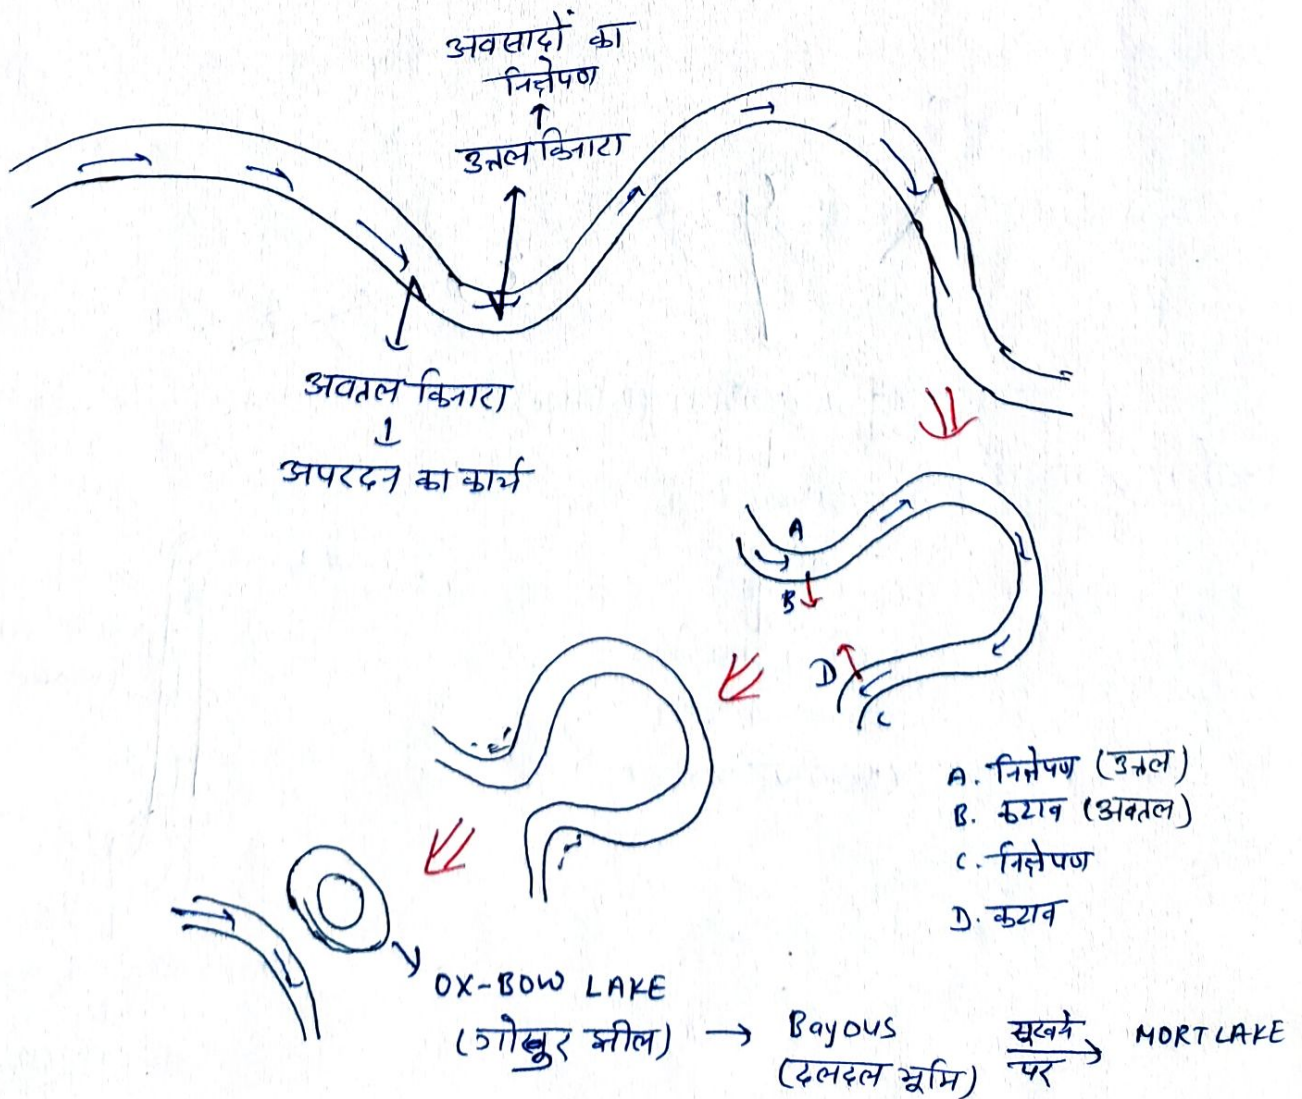 अवसादों का
निक्षेपण
उत्तल किनारा
अवतल किनारा
अपरदन का कार्य
A
B
D
C
A. निक्षेपण (उत्तल)
B. कटाव (अवतल)
C. निक्षेपण
D. कटाव
OX-BOW LAKE
(गोखुर झील) → Bayous सूखने पर → MORT LAKE
(दलदल भूमि)